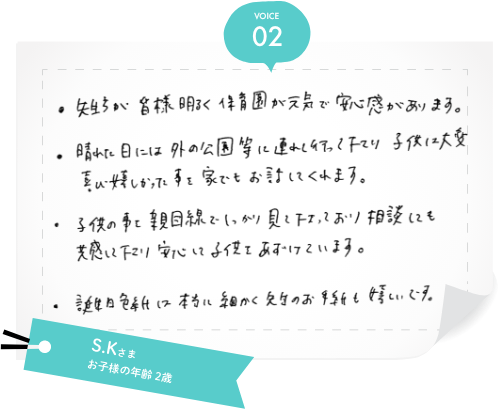 VOICE
02
・先生方が 皆様 明るく 保育園が元気で 安心感があります。
・晴れた日には 外の公園等に連れて行って下さり 子供は大変
喜び嬉しかった事を 家でも お話してくれます。
・子供の事を 親目線で しっかり 見て下さっており 相談にも
共感して下さり 安心して 子供を あずけています。
・誕生日色紙は 本当に 細かく 先生のお手紙も 嬉しいです。
S.Kさま
お子様の年齢 2歳